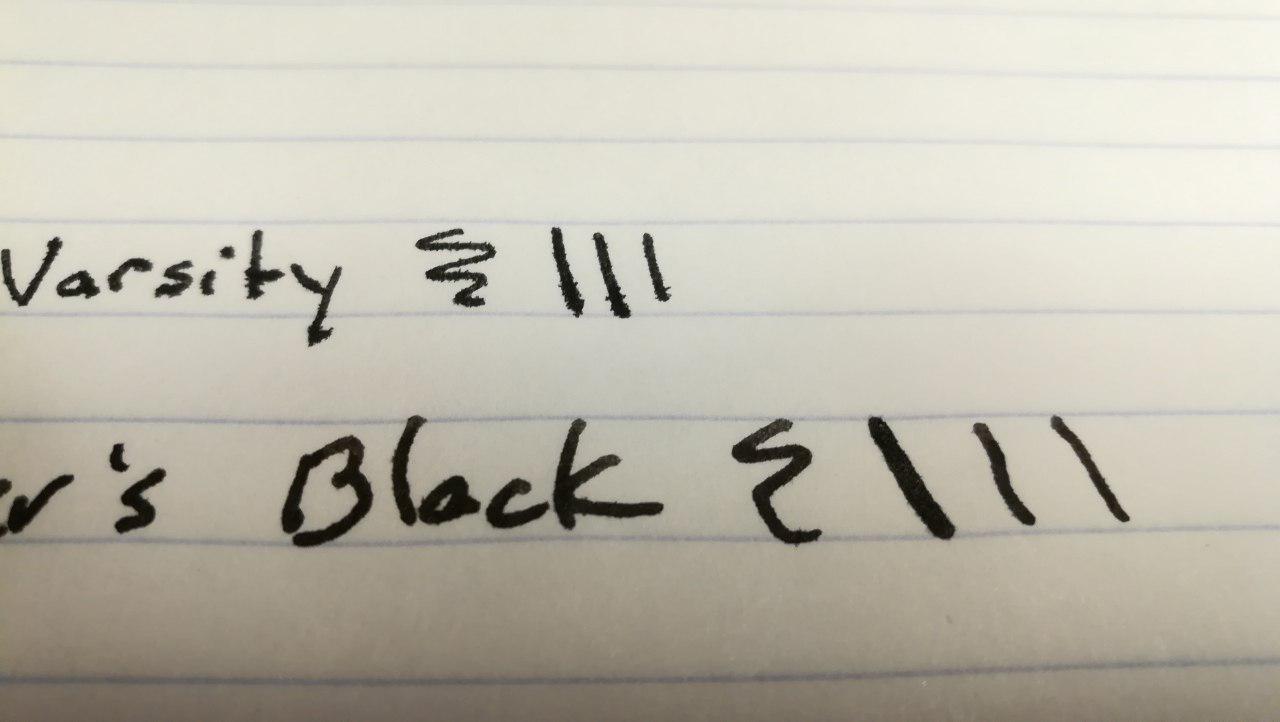 Varsity
Black